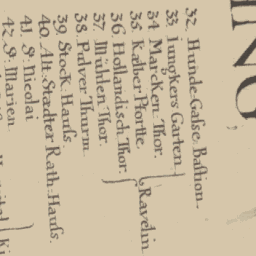 ING
32. Hunde-Gasse Bastion.
33. Jungkers Garten
34. Marcken Thor.
35. Kalber Pfortte. Ravelin
36. Hollandisch Thor.
37. Mühlen Thor.
38. Pulver Thurm.
39. Stock-Hauss.
40. Alt-Stadter Rath-Hauss.
41. S. Nicolai
42. S. Marien